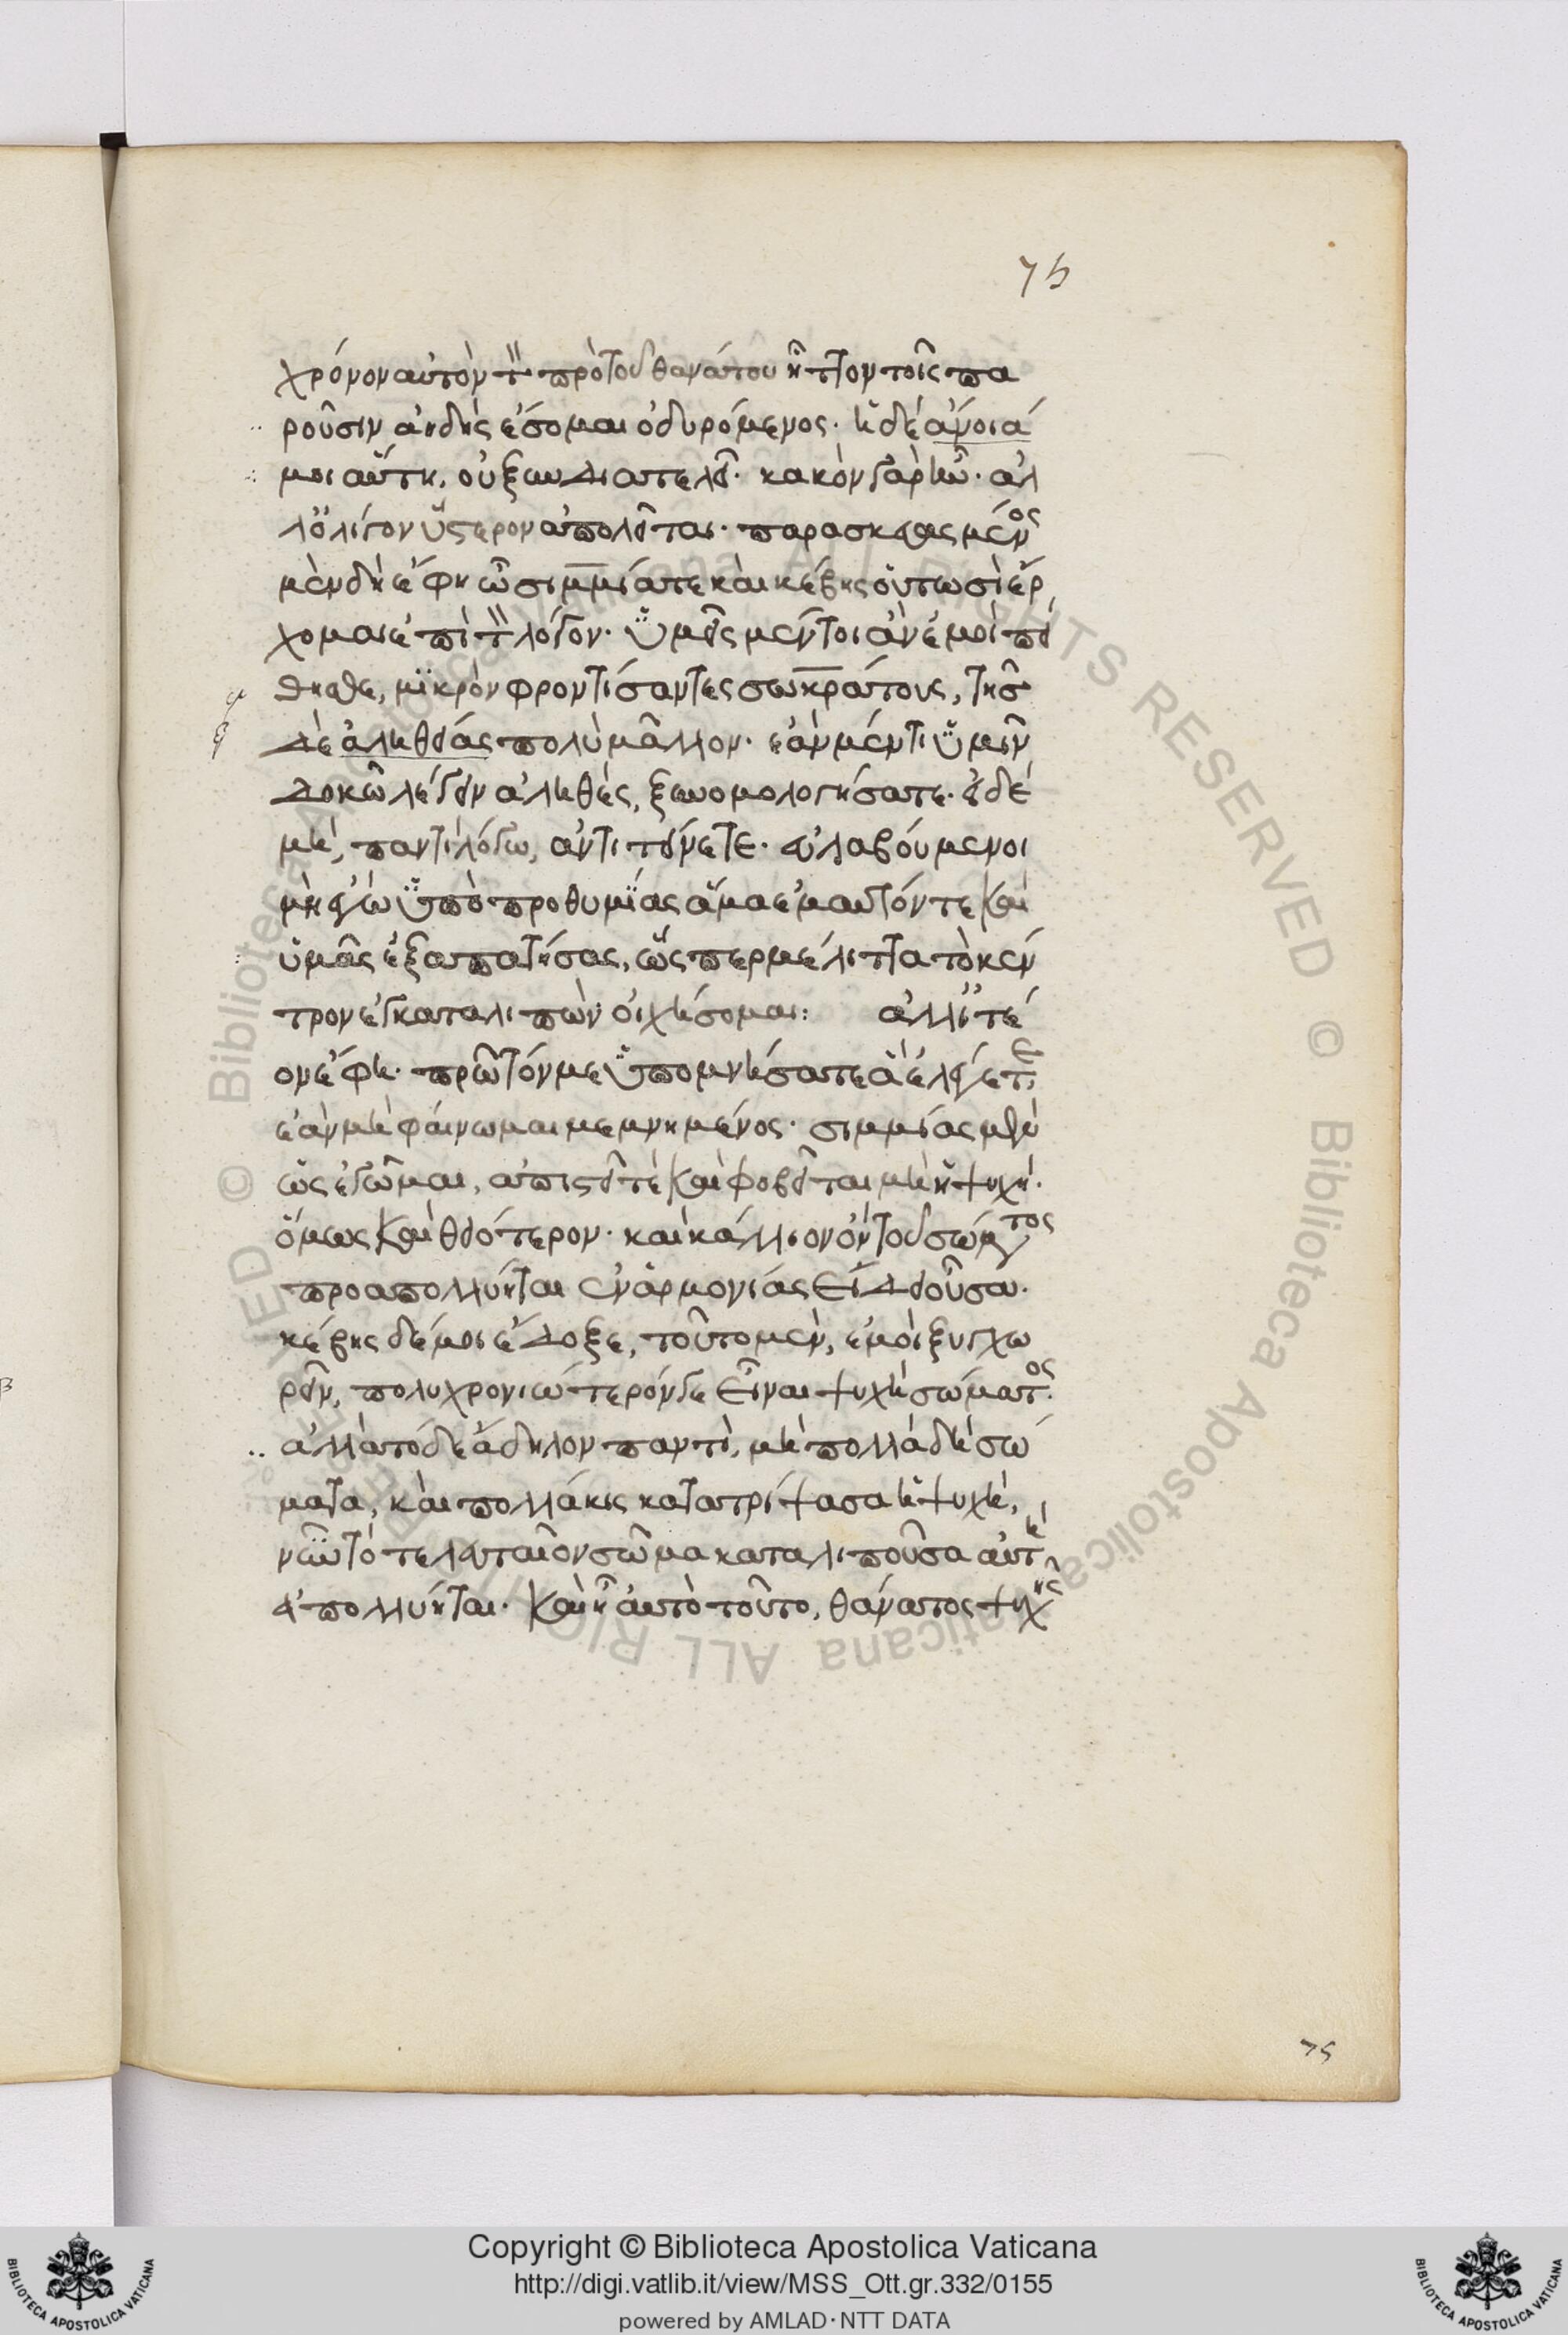 75
χρόνον αὐτὸν τὸν πρὸ τοῦ θανάτου ἧττον τοῖς πα
ροῦσιν ἀηδὴς ἔσομαι ὀδυρόμενος· ἡ δὲ ἄνοιά
μοι αὕτη, οὐ ξυνδιατελεῖ· κακὸν γὰρ ἦν· ἀλ
λ' ὀλίγον ὕστερον ἀπολεῖται· παρασκευασμένος
μὲν δὴ ἔφη ὦ σιμμία τε καὶ κέβης οὑτωσὶ ἔρ
χομαι ἐπὶ τὸν λόγον· ὑμεῖς μέντοι ἂν ἐμοὶ πεί
θησθε, μικρὸν φροντίσαντες σωκράτους, τῆς
δὲ ἀληθείας πολὺ μᾶλλον· ἐὰν μέν τι ὑμῖν
δοκῶ λέγειν ἀληθές, ξυνομολογήσατε· εἰ δὲ
μή, παντὶ λόγῳ, ἀντιτείνετε· εὐλαβούμενοι
μὴ ἐγὼ ὑπὸ προθυμίας ἅμα ἐμαυτόν τε καὶ
ὑμᾶς ἐξαπατήσας, ὥσπερ μέλιττα τὸ κέν
τρον ἐγκαταλιπὼν οἰχήσομαι: ἀλλ' ἰτέ
ον ἔφη· πρῶτόν με ὑπομνήσατε ἃ ἐλέγετε
ἐὰν μὴ φαίνωμαι μεμνημένος· σιμμίας μὲν
ὡς ἐγᾦμαι, ἀπιστεῖ τε καὶ φοβεῖται μὴ ἡ ψυχή·
ὅμως καὶ θειότερον· καὶ κάλλιον ὂν τοῦ σώματος
προαπολλύηται ἐν ἁρμονίας εἴδει οὖσα·
κέβης δέ μοι ἔδοξε, τοῦτο μὲν, ἐμοὶ ξυγχω
ρεῖν, πολυχρονιώτερόν γε εἶναι ψυχὴ σώματος·
ἀλλὰ τόδε ἄδηλον παντὶ, μὴ πολλὰ δὴ σώ
ματα, καὶ πολλάκις κατατρίψασα ἡ ψυχή,
νῦν τὸ τελευταῖον σῶμα καταλιποῦσα αὐτὴ
ἀπολλύηται· καὶ ᾖ αὐτὸ τοῦτο, θάνατος ψυχῆς
75
Copyright © Biblioteca Apostolica Vaticana
http://digi.vatlib.it/view/MSS_Ott.gr.332/0155
powered by AMLAD·NTT DATA